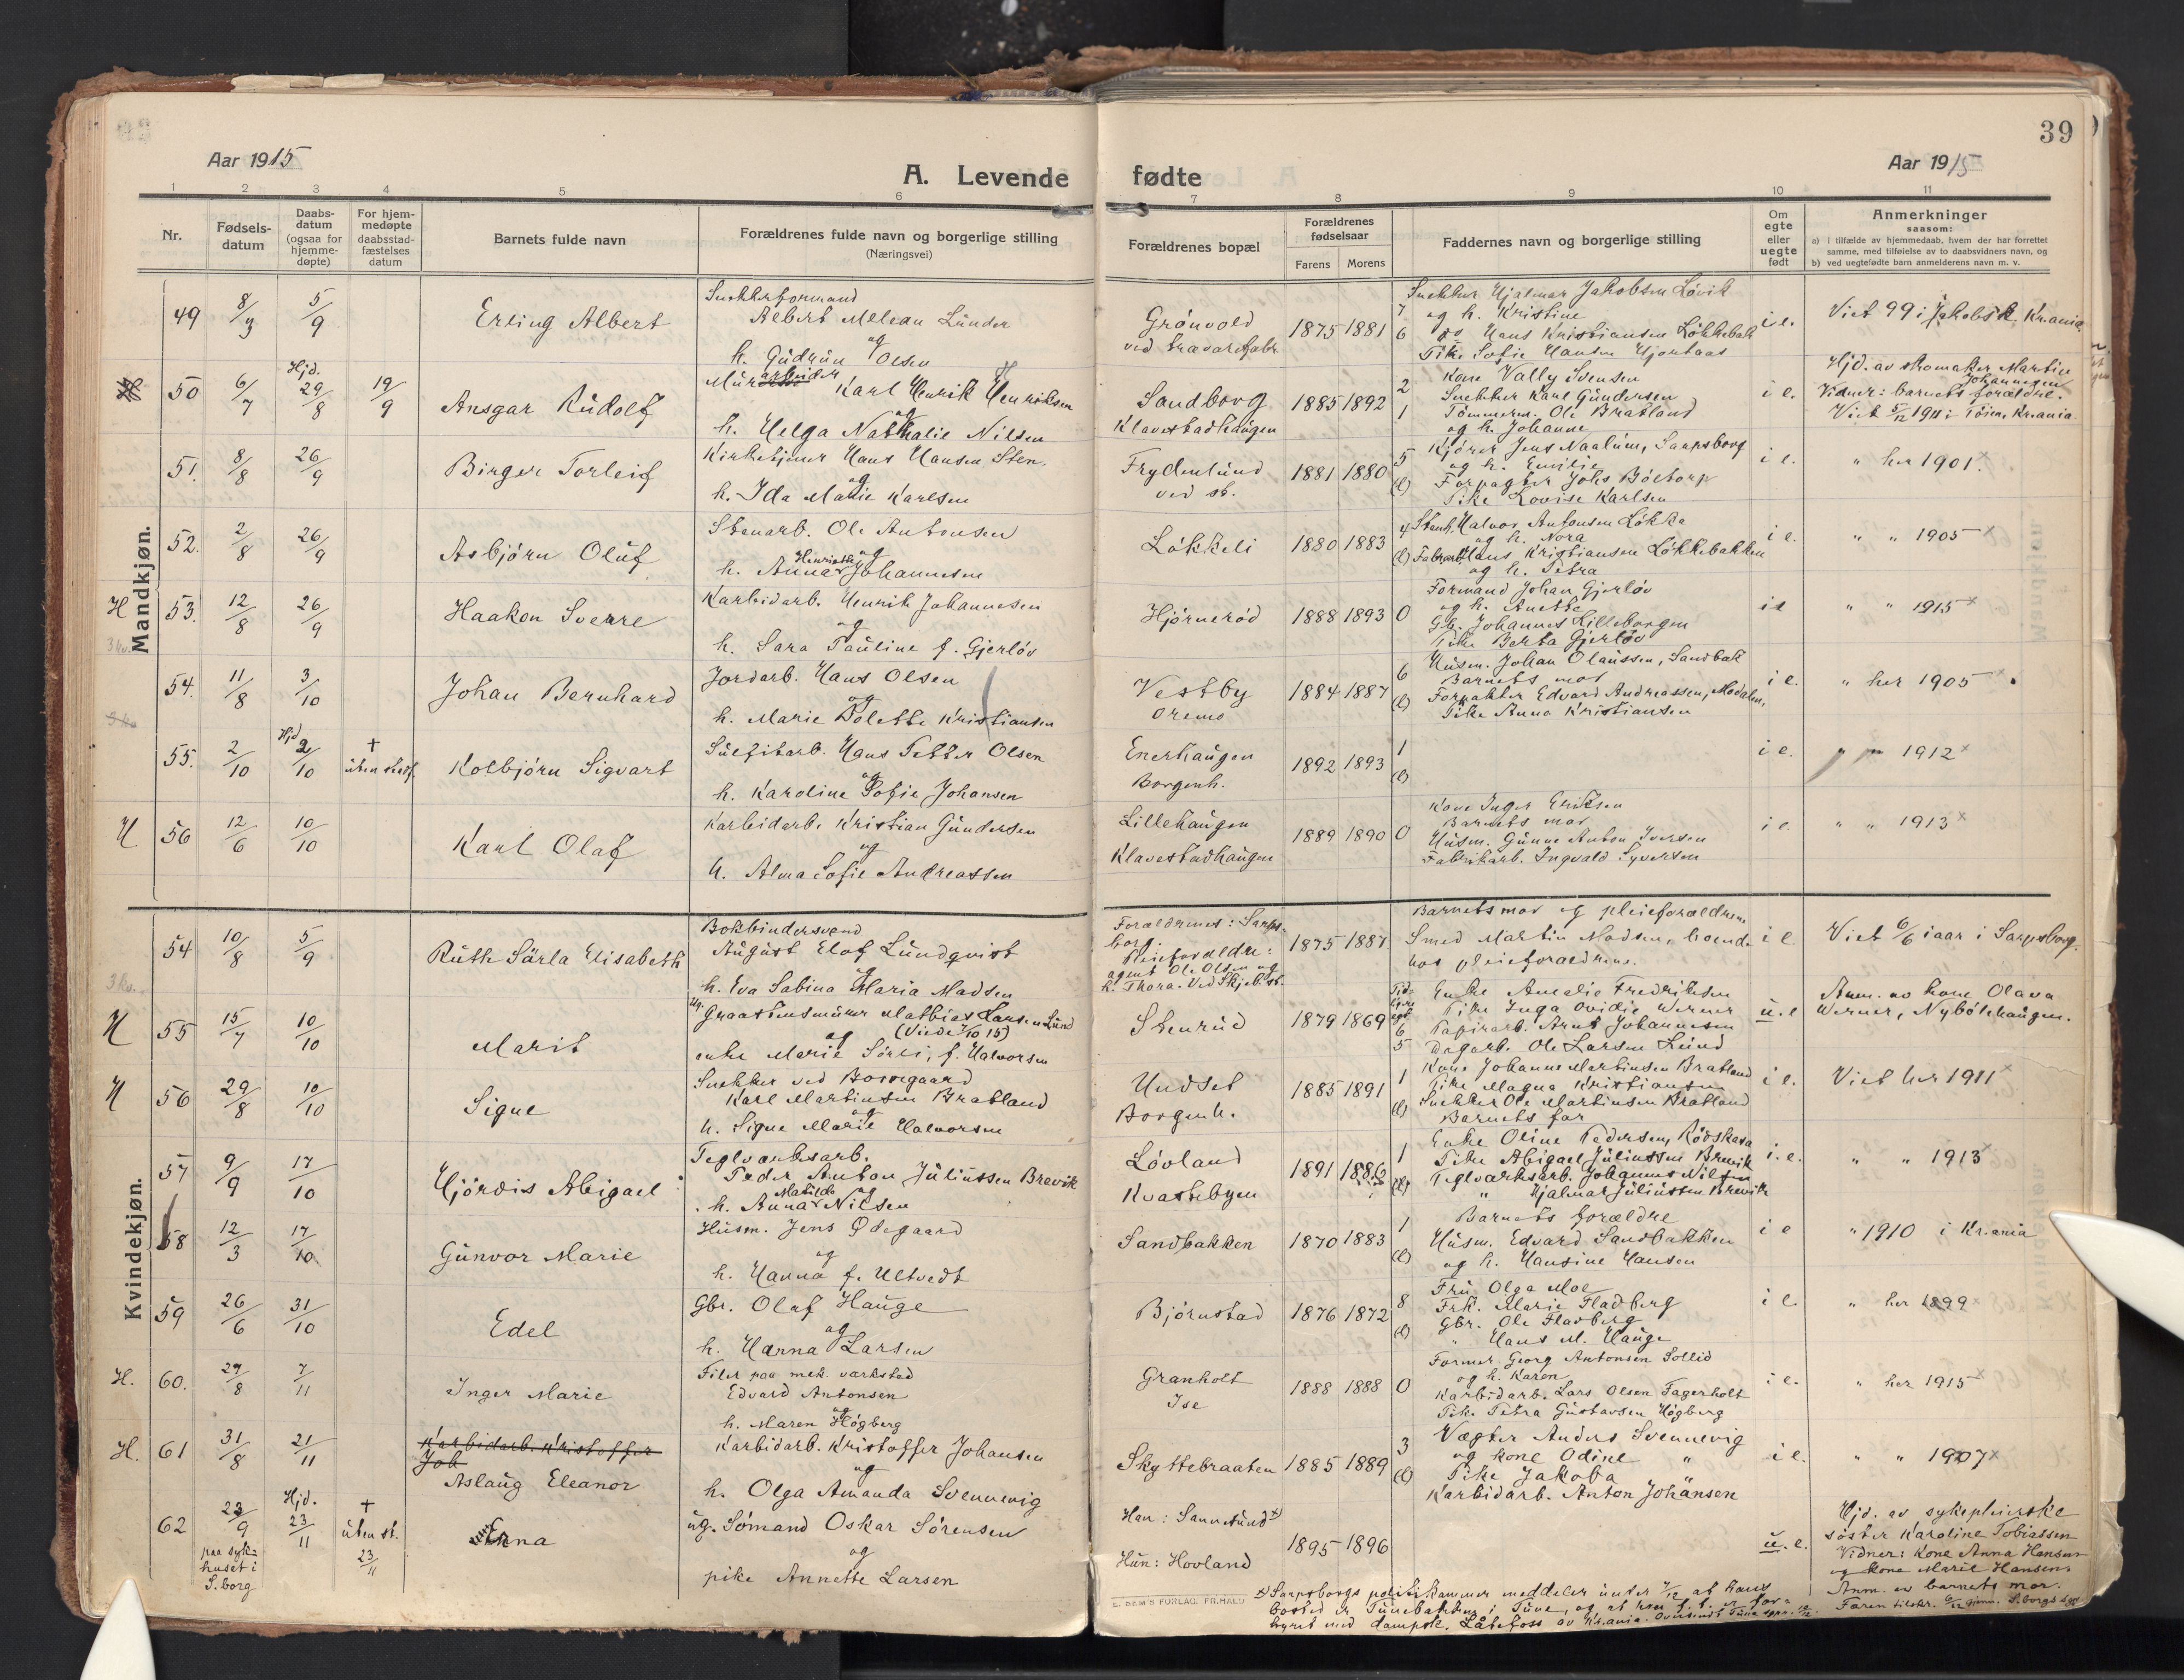 39
Aar 1915
A. Levende
fødte
Aar 1915
1 2 3 4 5 6 7 8 9 10 11
Nr.
Fødsels-
datum
Daabs-
datum
(ogsaa for
hjemme-
døpte)
For hjem-
medøpte
daabsstad-
fæstelses
datum
Barnets fulde navn
Forældrenes fulde navn og borgerlige stilling
(Næringsvei)
Forældrenes bopæl
Forældrenes
fødselsaar
Farens Morens
Faddernes navn og borgerlige stilling
Om
egte
eller
uegte
født
Anmerkninger
saasom:
a) i tilfælde av hjemmedaab, hvem der har forrettet
samme, med tilføielse av to daabsvidners navn, og
b) ved uegtefødte barn anmelderens navn m. v.
Mandkjøn.
49 8/3 5/9 Erling Albert
Snekkerformand
Albert Melean Lunder
og
h. Gudrun Olsen
Grønvold
ved travarefabr.
1875 1881
7
6
Snekker Hjalmar Jakobsen Løvik
og h. Kristine
Hans Kristiansen Løkkebak
Pike Sofie Hansen Hjortaas
i e.
Viet 99 i Jakobsk. Kr.ania
50 6/7 Hjd. 29/8 19/9 Ansgar Rudolf
Murarbeider Karl Henrik Henriksen
og
h. Helga Nathalie Nilsen
Sandborg
Klavestadhaugen
1885 1892
2
1
Kone Vally Svensen
Snekker Karl Gundersen
Tømmerm. Ole Bratland
og h. Johanne
i e.
Hjd. av skomaker Martin
Johannesen
Vidner: barnets forældre.
Viet 5/12 1911 i Kr.ania
51. 8/8 26/9 Birger Torleif
Kirketjener Hans Hansen Sten.
og
h. Ida Marie Karlsen
Frydenlund
ved st.
1881 1880
5
(l)
Kjører Jens Naalum, Sarpsborg
og h. Emilie
Forpagter Johs Bøetorp
Pike Lovise Karlsen
i e.
" her 1901 x
52. 2/8 26/9 Asbjørn Oluf
Stenarb. Ole Antonsen
og
h. Anna Henriette Johannesen
Løkkeli
1880 1883
4
(l)
Stenh. Halvor Antonsen Løkka
og h. Nora
Fabrarb. Hans Kristiansen Løkkebakken
og h. Petra
i e.
" " 1905 x
H 53. 12/8 26/9 Haakon Sverre
Karbidarb. Henrik Johannesen
og
h. Sara Pauline f. Gjerløv
Hjørnerød
1888 1893
0
Formand Johan Gjerløv
og h. Anette
Gb. Johannes Lilleborgen
Pike Berta Gjerløv
i e
" " 1915 x
54. 11/8 3/10 Johan Bernhard
Jordarb. Hans Olsen
og
h. Marie Bolette Kristiansen
Vestby
Oremo
1884 1887
6
(l)
Husm. Johan Olaussen, Sandbak
Barnets mor
Forpakter Edvard Andreassen, Modalen,
Pike Anna Kristiansen
i e.
" her 1905 x
55. 2/10 Hjd. 2/10 † uten stadf. Kolbjørn Sigvart
Sulfitarb. Hans Petter Olsen
og
h. Karoline Sofie Johansen
Enerhaugen
Borgenh.
1892 1893
1
(l)
i e.
" " 1912 x
H 56 12/6 10/10 Karl Olaf
Karbidarb. Kristian Gundersen
og
h. Alma Sofie Andreassen
Lillehaugen
Klavestadhaugen
1889 1890
0
Kone Inger Eriksen
Barnets mor
Husm. Gunne Anton Iversen
Fabrikarb. Ingvald Syversen
i e.
" " 1913 x
Kvindekjøn.
54 10/8 5/9 Ruth Särla Elisabeth
Bokbindersvend
August Elof Lundqvist
og
h. Eva Sabina Maria Madsen
Forældrenes: Sarps-
borg.
Pleieforældre:
agent Ole Olsen og
h. Thora. Ved Skjeb. st.
1875 1887
Barnets mor og pleieforældrene
Smed Martin Madsen, boende
hos pleieforældrene.
i e
Viet 6/6 iaar i Sarpsborg.
3 kv.
H 55 15/7 10/10 Marit
Ug. Graastensmurer Mathias Larsen Lund
(Viede 7/10 15)
og
enke Marie Sørli, f. Halvorsen
Stenrud
1879 1869
6
5
Enke Amalie Fredriksen
Pike Inga Ovidie Werner
Papirarb. Arnt Johannesen
Dagarb. Ole Larsen Lund
u. e
Anm. av kone Olava
Werner, Nybølehaugen.
H 56 29/8 10/10 Signe
Snekker ved Borregaard
Karl Martinsen Bratland
og
h. Signe Marie Halvorsen
Undset
Borgenh.
1885 1891
1
(l)
Kone Johanne Martinsen Bratland
Pike Magna Kristiansen
Snekker Ole Martinsen Bratland
Barnets far
i e.
Viet her 1911 x
57 9/9 17/10 Hjördis Abigael
Teglverksarb.
Peder Anton Juliussen Brevik
og
h. Anna Matilde Nilsen
Løvland
Kvastebyen
1891 1886
1
(l)
Enke Oline Pedersen, Rödskara
Pike Abigael Juliussen Brevik
Teglverksarb. Johannes Nilsen
" Hjalmar Juliussen Brevik
i. e.
" " 1913 x
58 12/3 17/10 Gunvor Marie
Husm. Jens Ødegaard
og
h. Hanna f. Ultvedt
Sandbakken
1870 1883
1
(l)
Barnets forældre
Husm. Edvard Sandbakken
og h. Hansine Hansen
i e
" 1910 i Kr.ania
59 26/6 31/10 Edel
Gbr. Olaf Hauge
og
h. Hanna Larsen
Bjørnstad
1876 1872
8
(l)
Fru Olga Moe
Frk. Marie Fladberg
Gbr. Ole Fladberg
" Hans M. Hauge
i e.
" her 1899 x
H. 60. 27/8 7/11 Inger Marie
Filer paa mek. værksted
Edvard Antonsen
og
h. Maren Høgberg
Granholt
Ise
1888 1888
0
Former Georg Antonsen Sollid
og h. Karen
Karbidarb. Lars Olsen Fagerholt
Pike Petra Gustavsen Høgberg
i e.
" her 1915 x
H. 61 31/8 21/11
Karbidarb. Kristoffer
Joh
Aslaug Eleanor
Karbidarb. Kristoffer Johansen
og
h. Olga Amanda Svennevig
Skyttebraaten
1885 1889
3
(l)
Vægter Anders Svennevig
og kone Odine "
Pike Jakoba
Karbidarb. Anton Johansen
i e.
" " 1907 x
62 23/9 Hjd. 23/11 † uten st. 23/11
paa syke-
huset i
S.borg
Erna
ug. Sømand Oskar Sørensen
og
pike Annette Larsen
Han: Sannesund x)
Hun: Hovland
1895 1896
u. e.
Hjd. av sykepleierske
søster Karoline Tobiassen
Vidner: Kone Anna Hansen
og kone Marie Hansen.
Anm. av barnets mor.
x) Sarpsborgs politikammer meddeler under 7/12 at hans
bosted er Tunebakken i Tune, og at han f. t. er for-
hyret med dampsk. Låtefoss av Kr.ania.
E. SEM'S FORLAG, FR.HALD